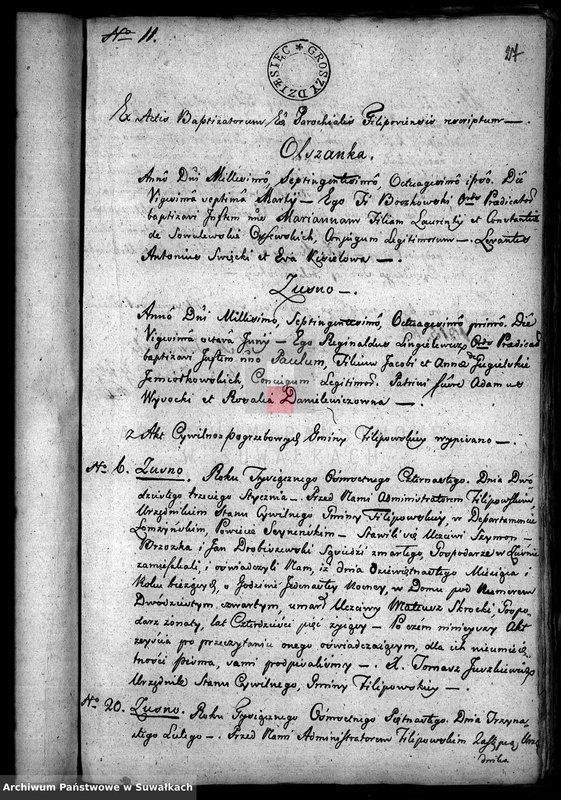 No 11.
27
DZIESIĘĆ GROSZY
Ex Actis Baptizatorum Ecc Parochialis Filipoviensis rescriptum —.
Olszanka.
Anno Dni Millesimo, Septingentesimo, Octuagesimo ipso. Die
Vigesima septima Martij — Ego Fr Boczkowski Ordo Predicator
baptizavi Jnftem nne Mariannam Filiam Laurenty et Constantia
de Sowulewskie Conjugum Legitimorum —. Levantes
Antonius Swięcki et Eva Kisielowa —.
Zusno —.
Anno Dni Millesimo, Septingentesimo, Octuagesimo primo. Die
Vigesima octava Juny — Ego Reginaldus Lingielewicz Ordo Predicat
baptizavi Jnftem nno Paulum, Filium Jacobi et Anna de Jugielskie
Jemiołkowskich, Conjugum Legitimor. Patrini fuere Adamus
Wysocki et Rosalia Danilewiczowna —.
z Akt Cywilno pogrzebowych Gminy Filipowskiey wypisano —.
No 6. Zusno. Roku Tysiącznego Ośmsetnego Czternastego. Dnia Dwó
dziestego trzeciego Stycznia —. Przed Nami Administratorem Filipowskim
Urzędnikiem Stanu Cywilnego Gminy Filipowskiey, w Departamencie
Łomżynskim, Powiecie Seynenskim — Stawili się Uczciwi Szymon
Brzozka i Jan Drobiszewski Sąsiedzi zmarłego Gospodarze w Zusnie
zamieszkali, i oświadczyli Nam, iż dnia Dziewiętnastego Miesiąca i
Roku bieżących, o Godzinie Jedenastey Nocney, w Domu pod Numerem
Dwódziestym czwartym, umarł Uczciwy Mateusz Skrocki, Gospo
darz żonaty, lat Czterdzieści pięć żyjący — Po czem ninieyszy Akt
zeyścia po przeczytaniu onego oświadczającym, dla ich nieumieię
tności pisma, sami podpisaliśmy —. X. Tomasz Juszkiewicz
Urzędnik Stanu Cywilnego, Gminy Filipowskiey —.
No 20. Zusno. Roku Tysiącznego Ośmsetnego Piętnastego. Dnia Trzyna
stego Lutego —. Przed Nami Administratorem Filipowskim Zastępcą Urzę
dnika
Archiwum Państwowe w Suwałkach